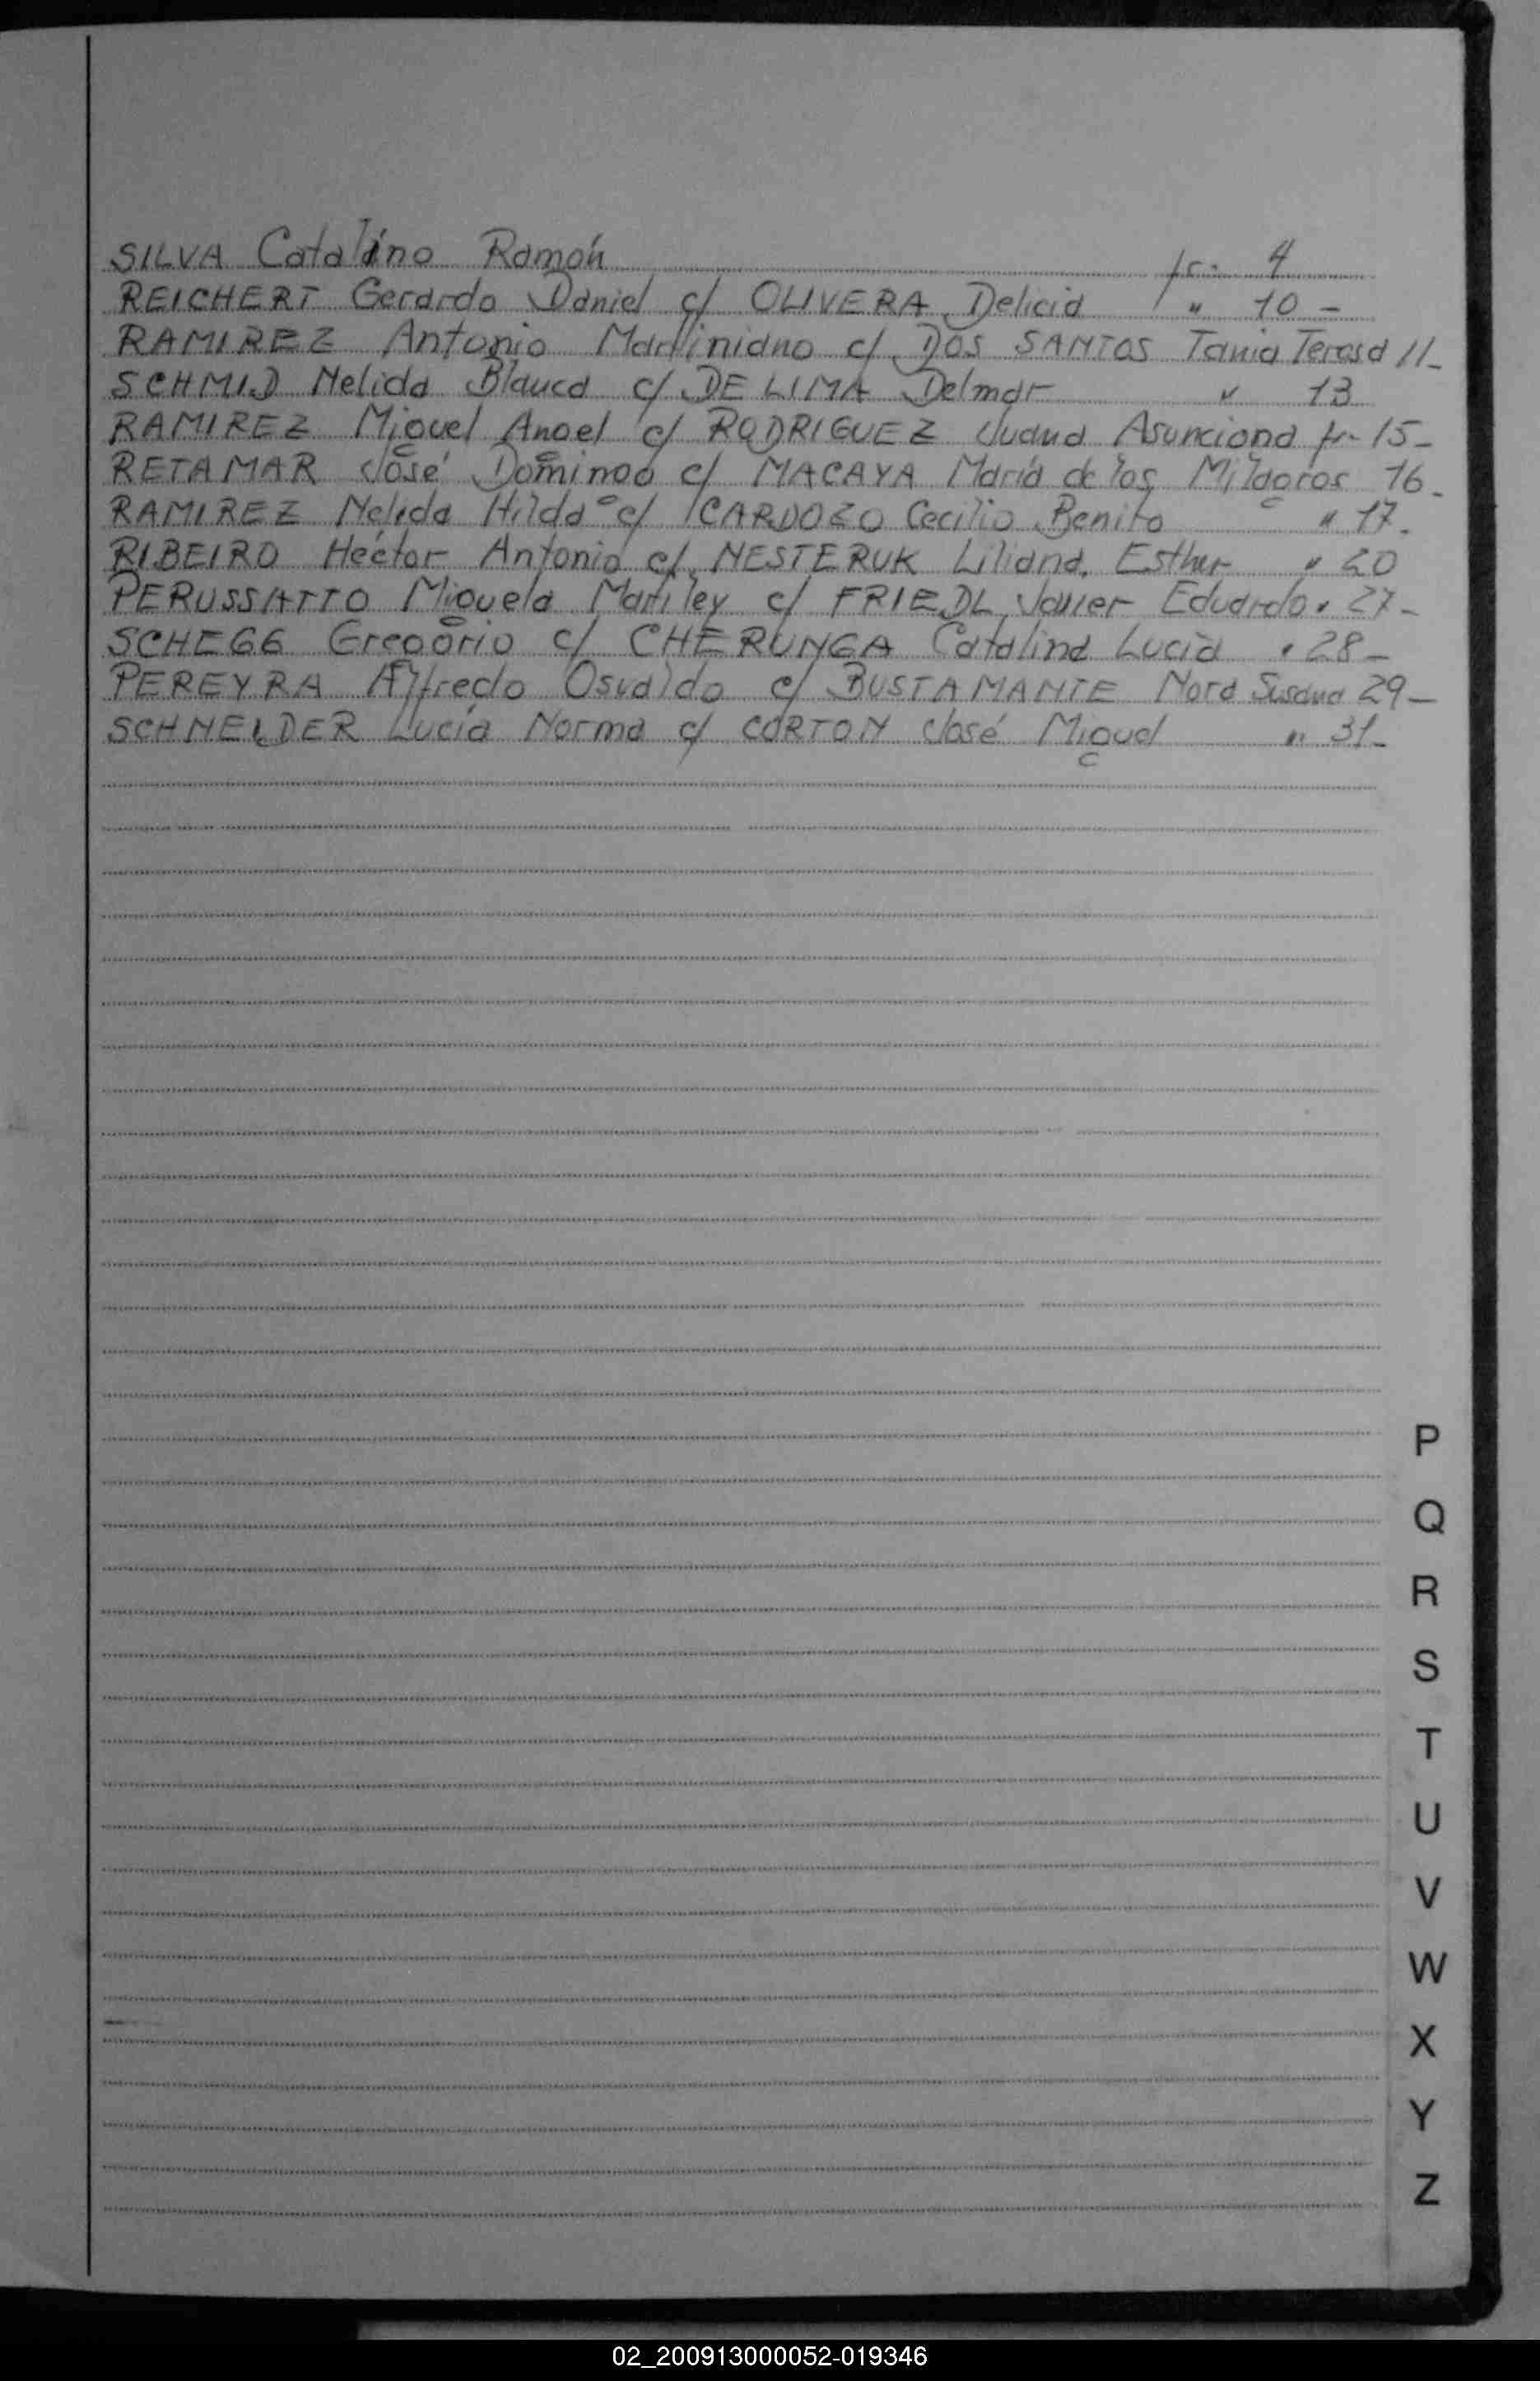 SILVA Catalino Ramón fr. 4
REICHERT Gerardo Daniel c/ OLIVERA Delicia " 10 -
RAMIREZ Antonio Martiniano c/ DOS SANTOS Tania Teresa 11-
SCHMID Nelida Blanca c/ DE LIMA Delmar " 13
RAMIREZ Miguel Angel c/ RODRIGUEZ Juana Asunciona fr. 15-
RETAMAR José Domingo c/ MACAYA María de los Milagros 16-
RAMIREZ Nelida Hilda c/ CARDOZO Cecilio Benito " 17.
RIBEIRO Héctor Antonio c/ NESTERUK Liliana Esther " 20
PERUSSATTO Miguela c/ FRIEDL Javier Eduardo " 27-
SCHEGG Gregorio c/ CHERUNGA Catalina Lucia " 28-
PEREYRA Alfredo Osvaldo c/ BUSTAMANTE Nora Susana 29-
SCHNEIDER Lucía Norma c/ CORTON José Miguel " 31-
P
Q
R
S
T
U
V
W
X
Y
Z
02_200913000052-019346